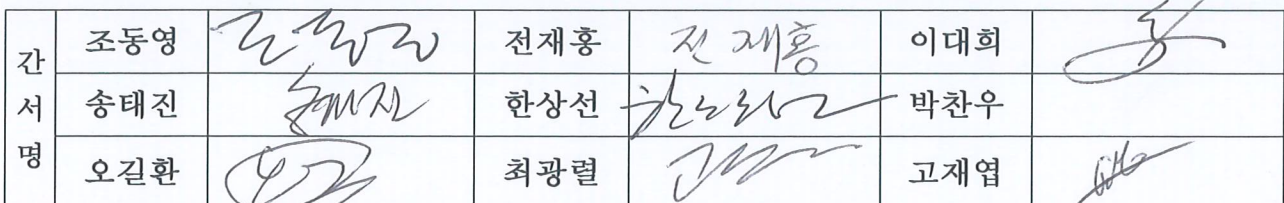 간서명 조동영 전재홍 전재홍 이대희
송태진 송태진 한상선 박찬우
오길환 최광렬 고재엽